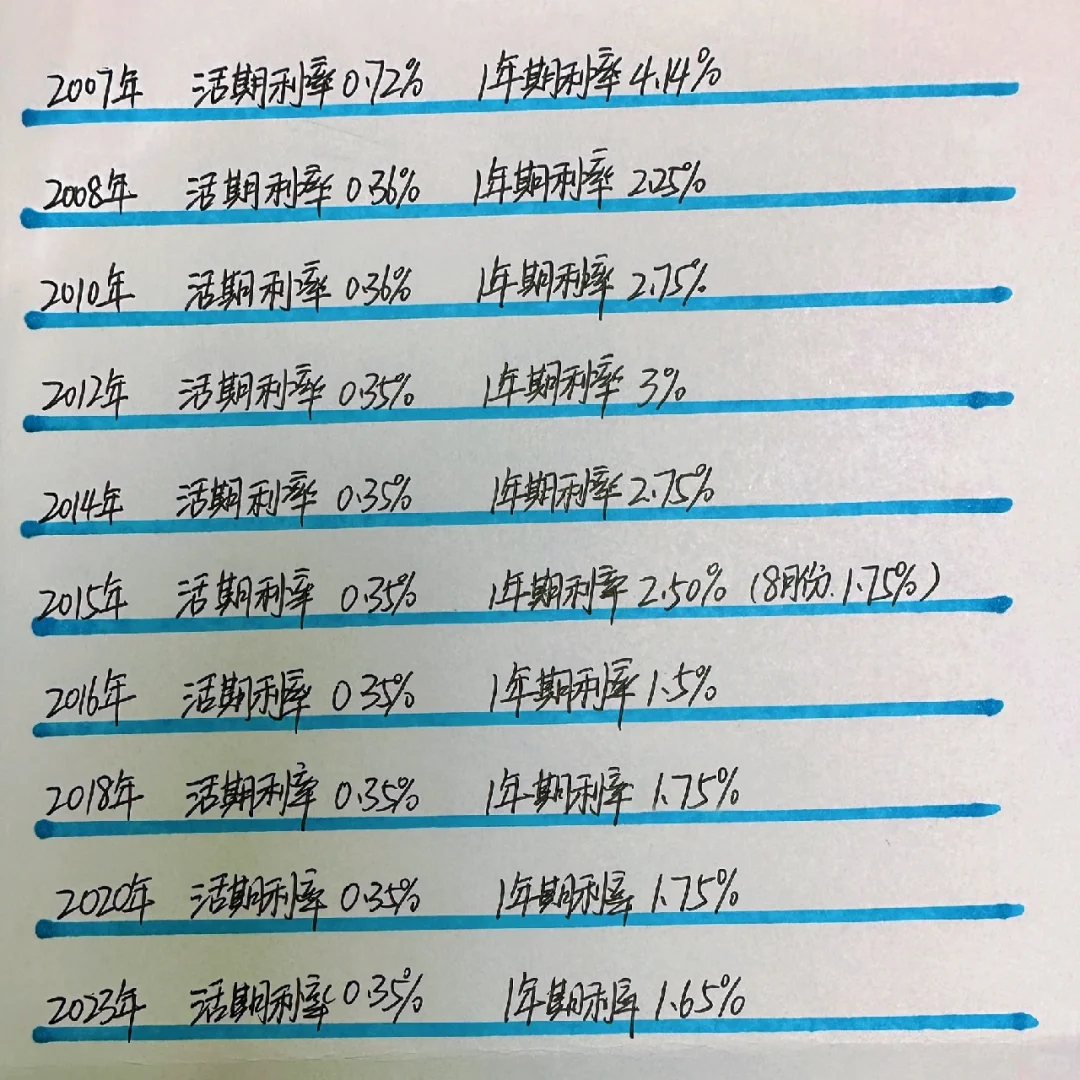 2007年 活期利率0.72% 1年期利率4.14%
2008年 活期利率0.36% 1年期利率2.25%
2010年 活期利率0.36% 1年期利率2.75%
2012年 活期利率0.35% 1年期利率3%
2014年 活期利率0.35% 1年期利率2.75%
2015年 活期利率0.35% 1年期利率2.50%(8月份.1.75%)
2016年 活期利率0.35% 1年期利率1.5%
2018年 活期利率0.35% 1年期利率1.75%
2020年 活期利率0.35% 1年期利率1.75%
2023年 活期利率0.35% 1年期利率1.65%